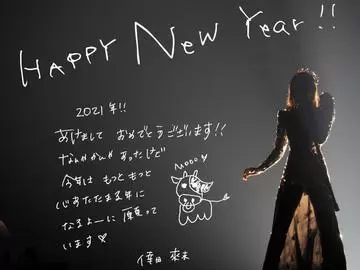 HAPPY NEW Year!!
2021年!!
あけまして おめでとうございます!!
なんやかんや あったけど
今年は もっともっと
じあたたまる年に
なるよーに 願って
います♡
MOOO
倖田 來未